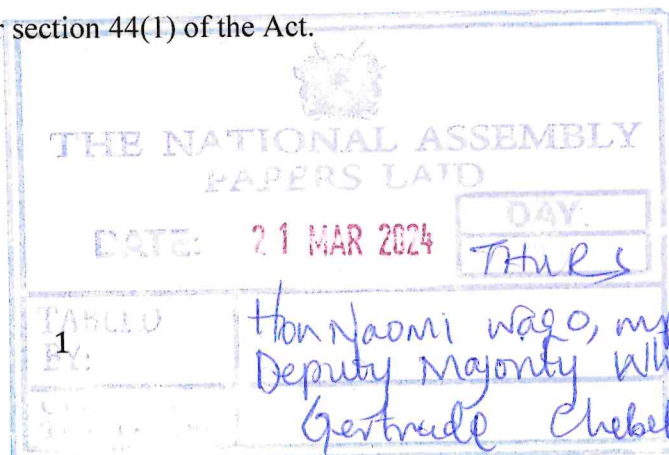 section 44(1) of the Act.
THE NATIONAL ASSEMBLY
PAPERS LAID
DATE: 21 MAR 2024
DAY.
THURS
TABLED BY:
Hon Naomi Waqo, MP
Deputy Majority Wh
1
Gertrude Chebet